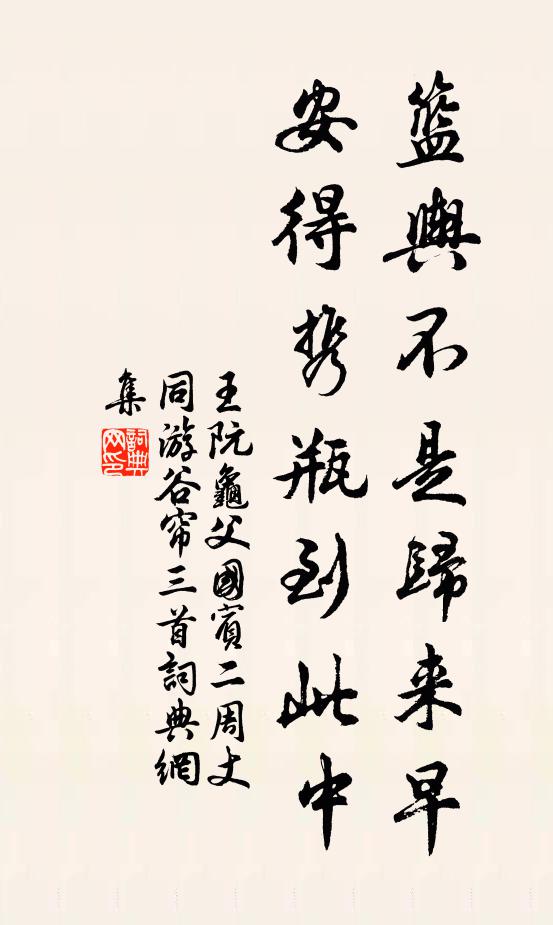 籃輿不是歸来早
安得携瓶到此中
王阮龜父國賓二周丈
同游谷帘三首詞典網
集
詞典网印